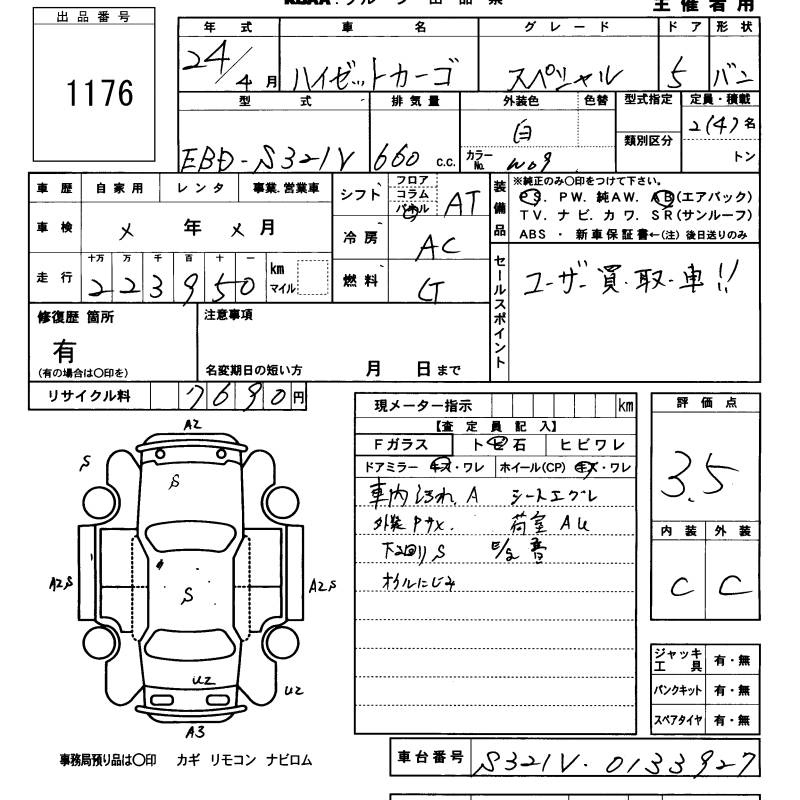 主催者用
出品番号
1176
年式 車名 グレード ドア 形状
24/4月 ハイゼットカーゴ スペシャル 5 バン
型式 排気量 外装色 色替 型式指定 定員・積載
EBD-S321V 660 c.c. 白 2(4)名
カラーNo. W09 類別区分 トン
車歴 自家用 レンタ 事業.営業車 シフト フロア コラム パネル AT
装備品 ※純正のみ〇印をつけて下さい。
PS. PW. 純AW. AB(エアバック)
TV. ナビ. カワ. SR(サンルーフ)
ABS ・ 新車保証書←(注) 後日送りのみ
車検 × 年 × 月 冷房 AC
走行 十万 万 千 百 十 一 km マイル
2 2 3 9 5 0
燃料
セールスポイント ユーザー買・取・車!!
修復歴 箇所 注意事項
有
(有の場合は〇印を) 名変期日の短い方 月 日まで
リサイクル料 7690円
現メーター指示 km
【査定員記入】
Fガラス トビ石 ヒビワレ
ドアミラー キズ・ワレ ホイール(CP) キズ・ワレ
車内ヨゴれ.A シートエグレ
荷室 AU
下回りS
オイルにじみ
評価点
3.5
内装 外装
C C
A2
S
S
A2S S A2S
U2
U2
A3
ジャッキ工具 有・無
パンクキット 有・無
スペアタイヤ 有・無
事務局預り品は〇印 カギ リモコン ナビロム
車台番号 S321V-0133927